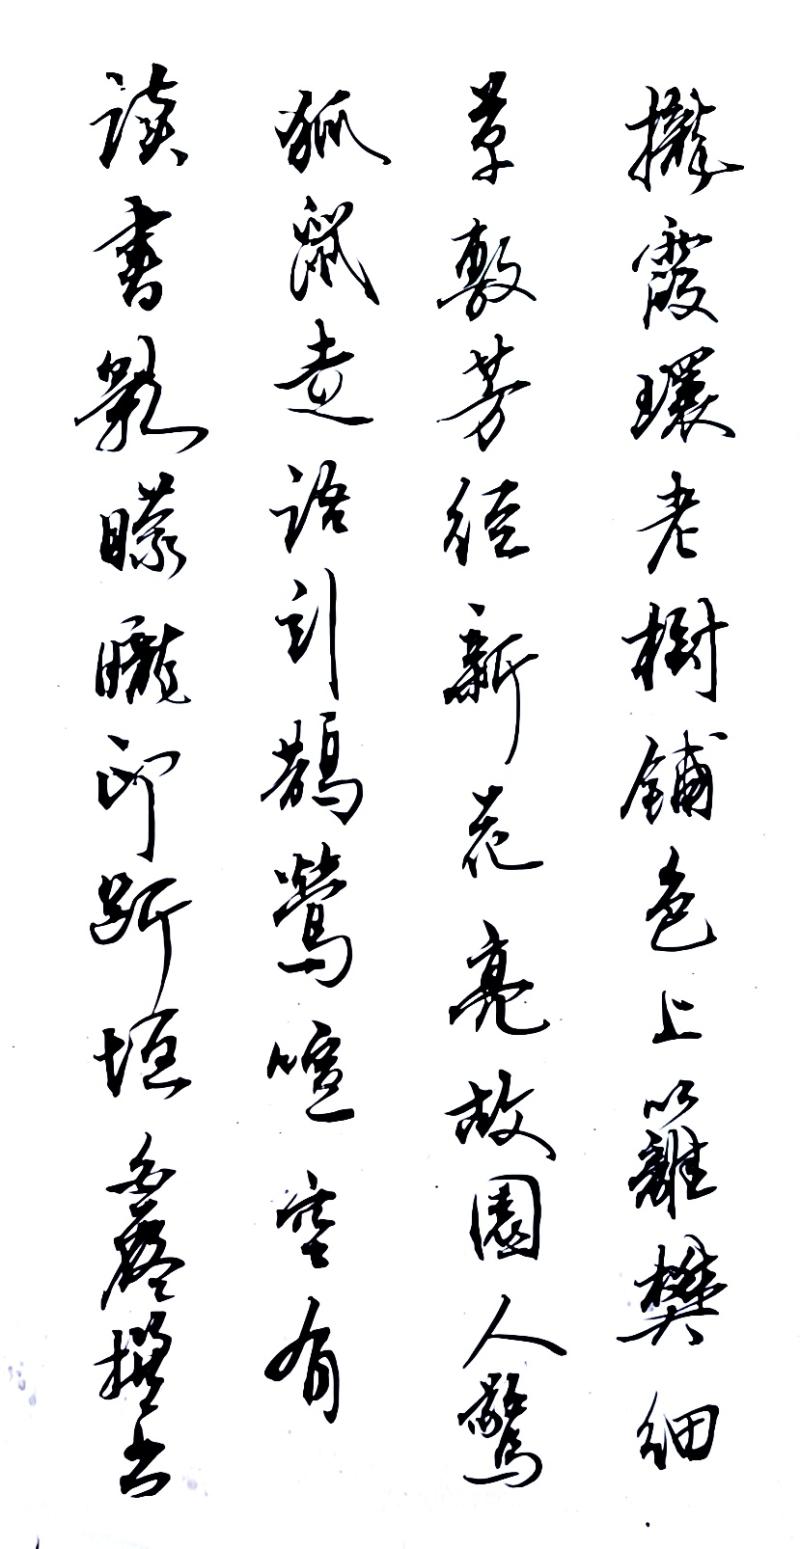 攏霞環老樹鋪色上籬樊細
草敷芳徑新花亮故園人驚
狐鼠走語引鵲鶯喧空有
读書影朦朧印斷垣 撰书